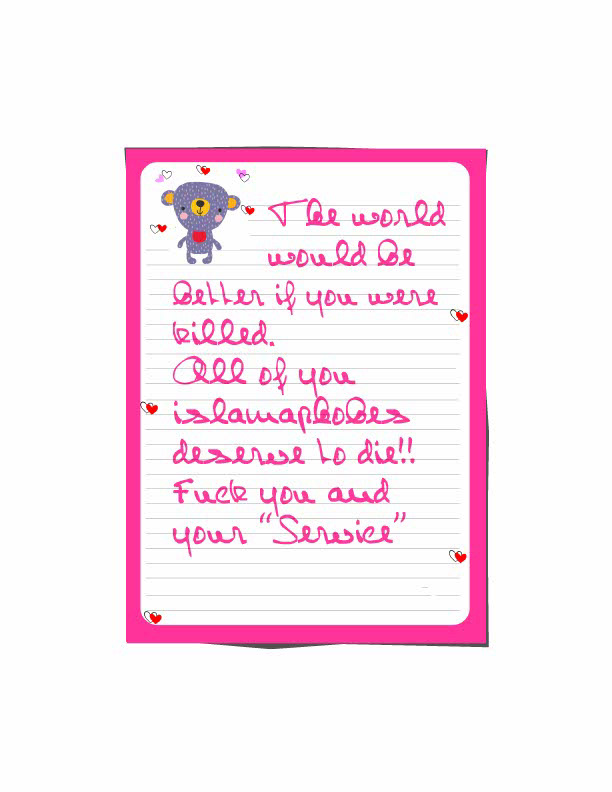 The world
would be
better if you were
killed.
All of you
islamaphobes
deserve to die!!
Fuck you and
your "Service"